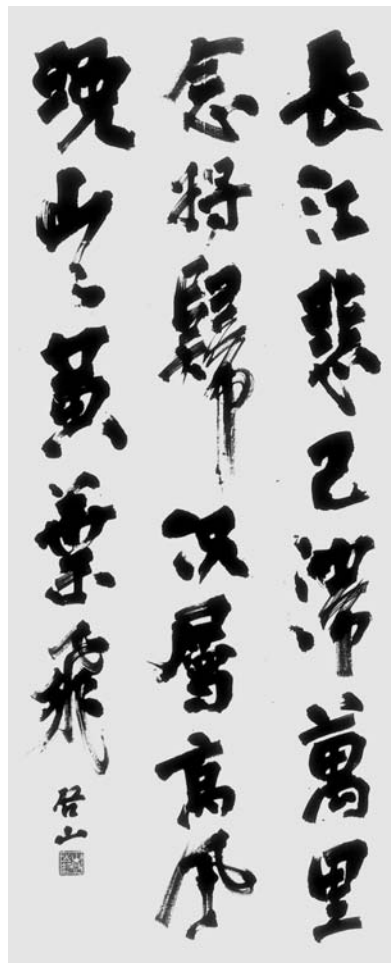 長江悲已滯萬里
念將歸况屬高風
晚山々黃葉飛
山